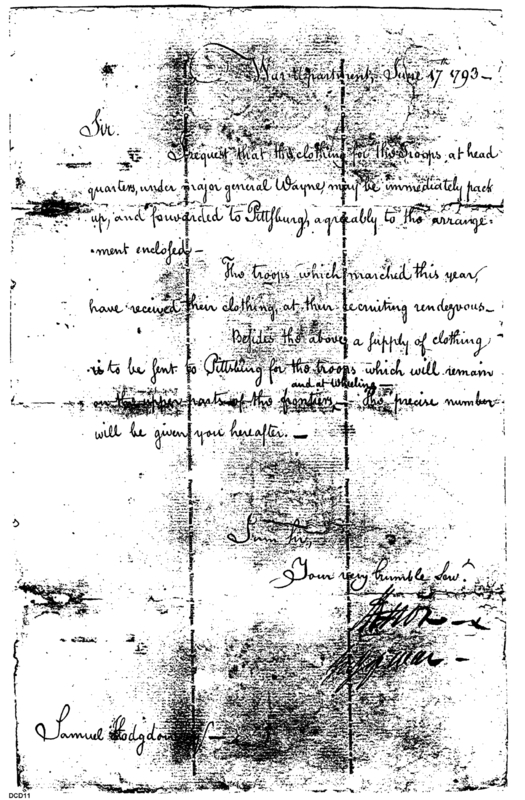 War department, June 17th 1793 —
Sir.
I request that the clothing for the troops, at head
quarters, under major general Wayne, may be immediately pack
up, and forwarded to Pittsburg, agreeably to the arrange-
-ment enclosed. —
The troops which marched this year,
have received their clothing, at their recruiting rendezvous —
Besides the above, a supply of clothing
is to be sent to Pittsburg for the troops which will remain
and at Wheeling —
on the upper parts of the frontiers, — The precise number
will be given you hereafter. —
I am Sir,
Your very humble Serv.t
HKnox
Secy of war —
Samuel Hodgdon
DCD11